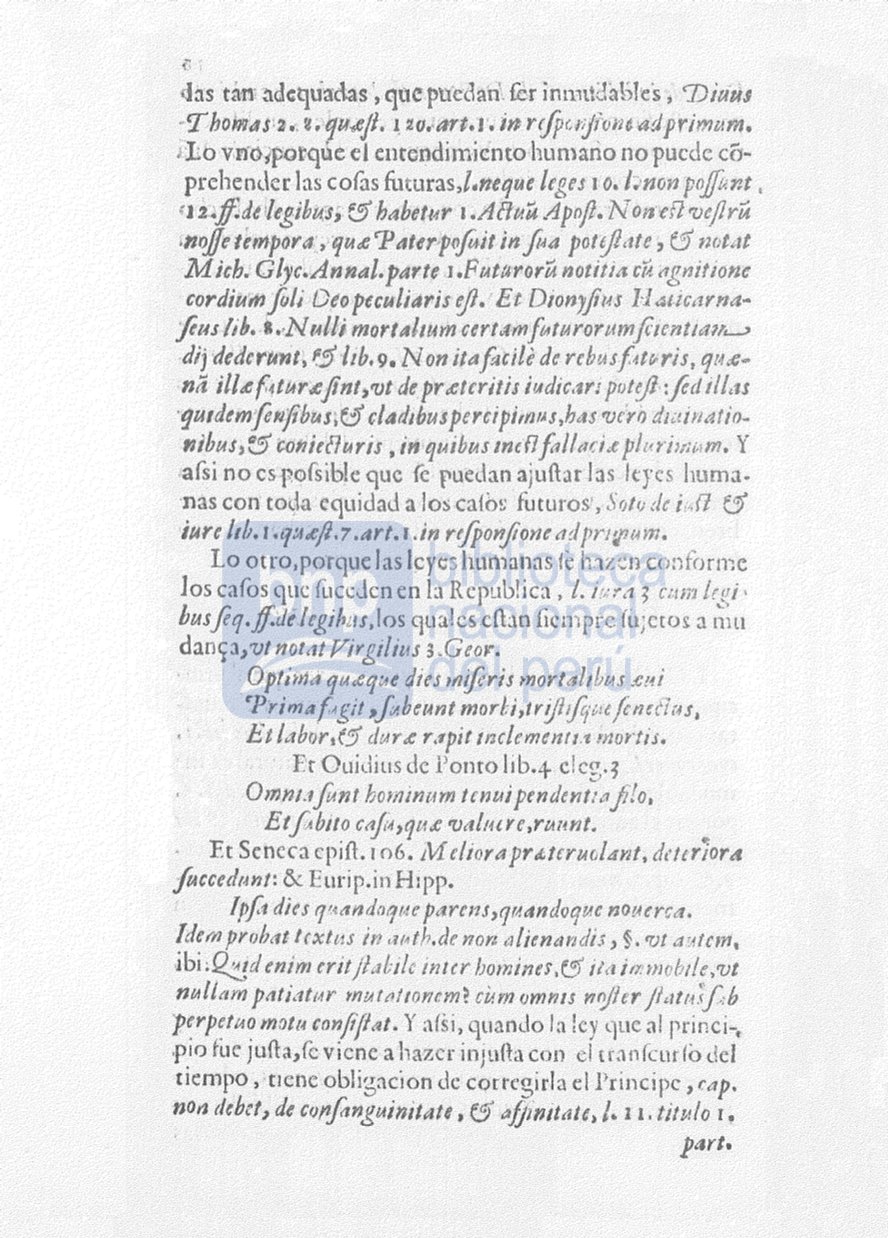 6
das tan adequadas, que puedan ser inmudables, Diuus
Thomas 2. 2. quæst. 120. art. 1. in responsione ad primum.
Lo vno, porque el entendimiento humano no puede cõ-
prehender las cosas futuras, l. neque leges 10. l. non possunt
12. ff. de legibus, & habetur 1. Actuũ Apost. Non est vestrũ
nosse tempora, quæ Pater posuit in sua potestate, & notat
Mich. Glyc. Annal. parte 1. Futurorũ notitia cũ agnitione
cordium soli Deo peculiaris est. Et Dionysius Halicarna-
seus lib. 8. Nulli mortalium certam futurorum scientiam
dij dederunt, & lib. 9. Non ita facilè de rebus futuris, quæ-
nã illæ futuræ sint, vt de præteritis iudicari potest: sed illas
quidem sensibus, & cladibus percipimus, has vero diuinatio-
nibus, & coniecturis, in quibus inest fallaciæ plurimum. Y
assi no es possible que se puedan ajustar las leyes huma-
nas con toda equidad a los casos futuros, Soto de iust &
iure lib. 1. quæst. 7. art. 1. in responsione ad primum.
Lo otro, porque las leyes humanas se hazen conforme
los casos que suceden en la Republica, l. iura 3 cum legi
bus seq. ff. de legibus, los quales estan siempre sujetos a mu
dança, vt notat Virgilius 3. Geor.
Optima quæque dies miseris mortalibus æui
Prima fugit, subeunt morbi, tristisque senectus,
Et labor, & duræ rapit inclementia mortis.
Et Ouidius de Ponto lib. 4 eleg. 3
Omnia sunt hominum tenui pendentia filo,
Et subito casu, quæ valuere, ruunt.
Et Seneca epist. 106. Meliora præteruolant, deteriora
succedunt: & Eurip. in Hipp.
Ipsa dies quandoque parens, quandoque nouerca.
Idem probat textus in auth. de non alienandis, §. vt autem,
ibi: Quid enim erit stabile inter homines, & ita immobile, vt
nullam patiatur mutationem? cùm omnis noster status sub
perpetuo motu consistat. Y assi, quando la ley que al princi-
pio fue justa, se viene a hazer injusta con el transcurso del
tiempo, tiene obligacion de corregirla el Principe, cap.
non debet, de consanguinitate, & affinitate, l. 11. titulo 1.
part.
bnp
biblioteca
nacional
del perú